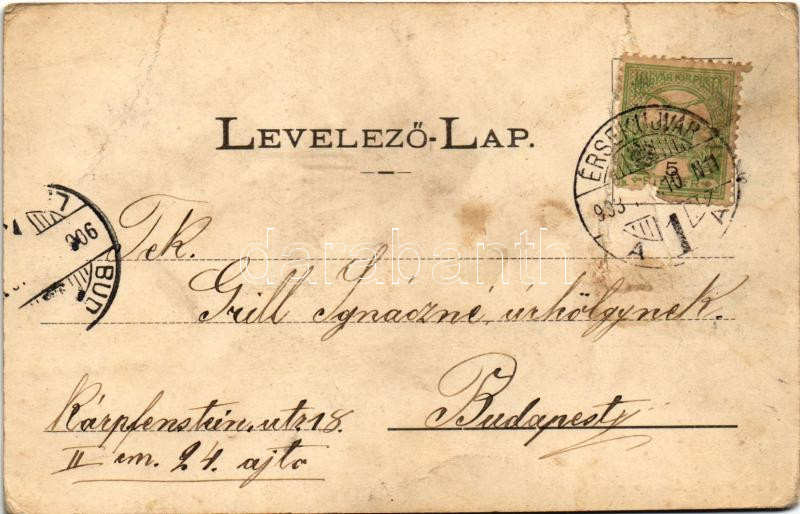 LEVELEZŐ-LAP.
MAGYAR KIR. POSTA
5
ÉRSEKUJVÁR
903
10. N11
A
1
906
BUD
Tek.
Grill Ignáczné úrhölgynek.
Budapest
Kárpfenstein utz 18.
II em. 24. ajtó
darabanth